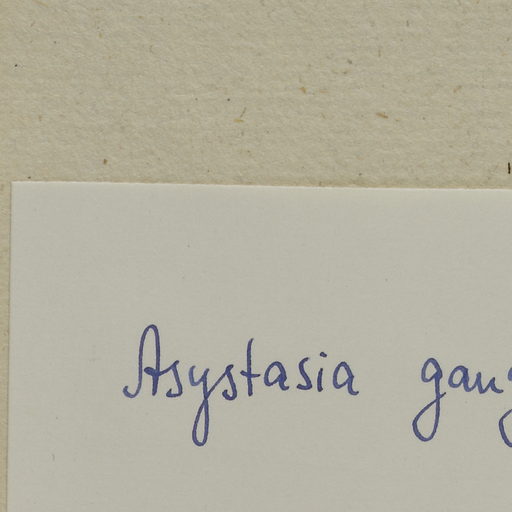 Asystasia gang